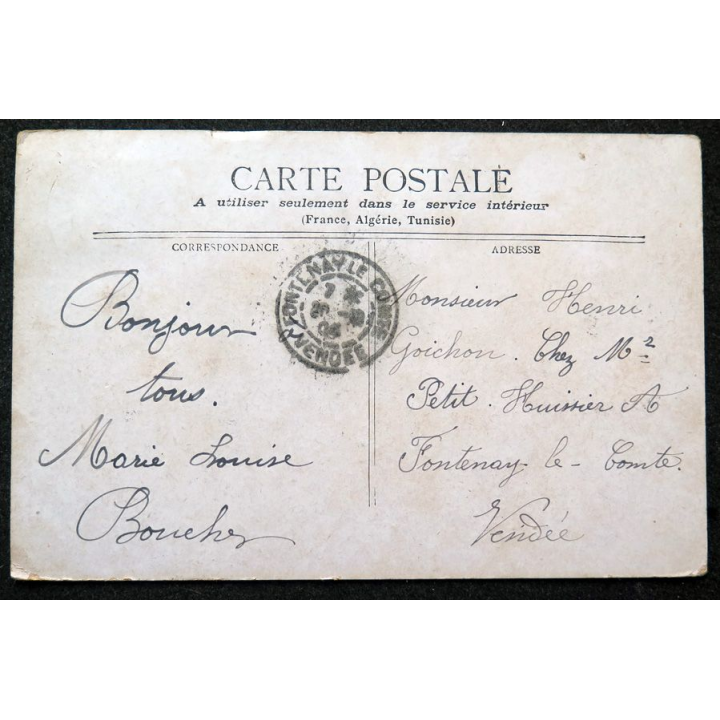 CARTE POSTALE
A utiliser seulement dans le service intérieur
(France, Algérie, Tunisie)
CORRESPONDANCE
Bonjour
tous.
Marie Louise
Boucher
FONTENAY LE COMTE
VENDEE
ADRESSE
Monsieur Henri
Goichon. Chez Mᵉ
Petit. Huissier A
Fontenay-le-Comte.
Vendée